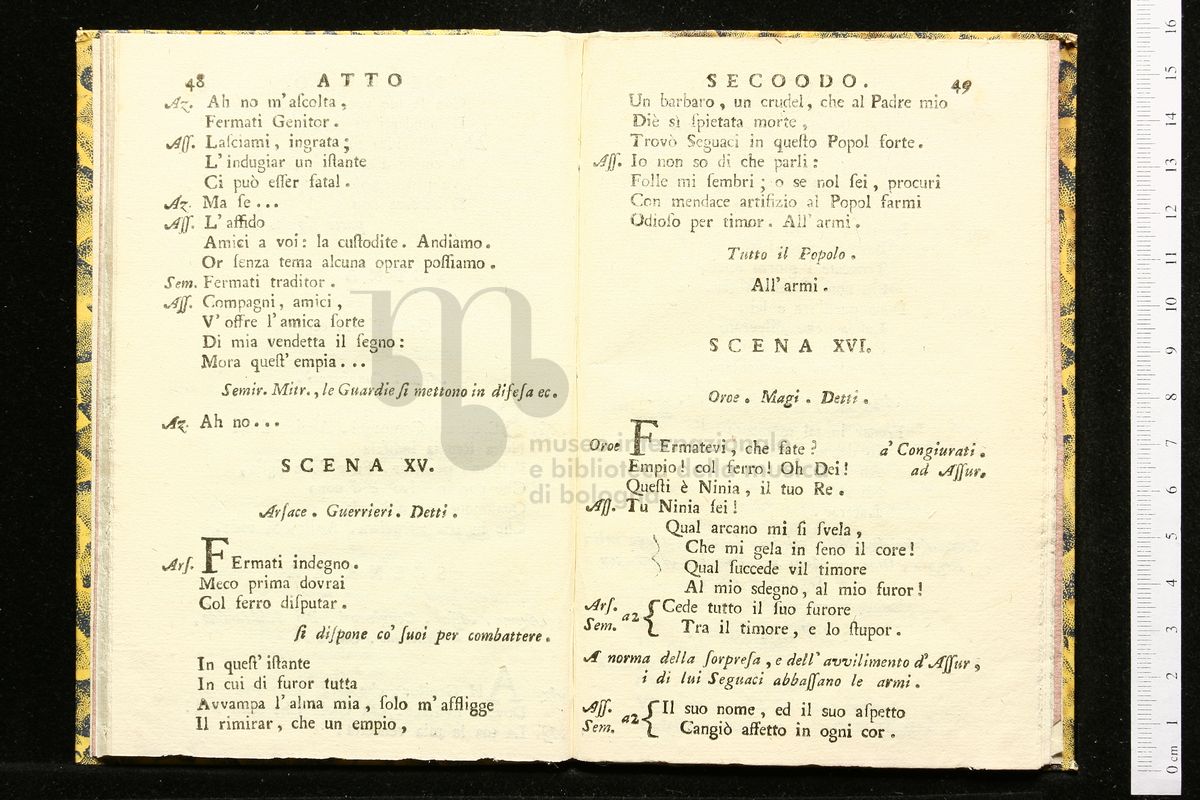 48 ATTO
Az. Ah no m'aſcolta,
Fermati Genitor.
Aſſ. Laſciami, ingrata;
L'indugiar un iſtante
Ci può eſſer fatal.
Az. Ma ſe...
Aſſ. L'affido
Amici a voi: la cuſtodite. Andiamo.
Or ſenza tema alcuna oprar poſſiamo.
Sem. Fermati traditor.
Aſſ. Compagni, amici,
V'offre l'amica ſorte
Di mia vendetta il ſegno:
Mora queſt'empia...
Semir. Mitr., le Guardie ſi mettono in difeſa ec.
Az. Ah no...
SCENA XV.
Arſace. Guerrieri. Detti.
Arſ. FErmati indegno.
Meco prima dovrai
Col ferro diſputar.
ſi diſpone co' ſuoi per combattere.
In queſt'iſtante
In cui di furor tutta
Avvampa l'alma mia, ſolo m'affligge
Il rimirar, che un empio,
SECOODO. 49
Un barbaro, un crudel, che al Padre mio
Diè sì ſpietata morte,
Trovò Seguaci in queſto Popol forte.
Aſſ. Io non so di che parli:
Folle mi ſembri; o se nol ſei, procuri
Con mendace artifizio al Popol farmi
Odioſo per timor. All'armi.
Tutto il Popolo.
All'armi.
SCENA XVI.
Oroe. Magi. Detti.
Oroe FErmatevi, che fate? a' Congiurati.
Empio! col ferro! Oh Dei! ad Aſſur.
Queſti è Ninia, il tuo Re.
Aſſ. Tu Ninia ſei!
Qual arcano mi ſi ſvela,
Che mi gela in ſeno il core!
Qual ſuccede vil timore
Al mio sdegno, al mio furor!
Arſ. Sem. a2 { Cede tutto il ſuo furore
Tra il timore, e lo ſtupor.
A norma della ſorpreſa, e dell'avvilimento d'Aſſur,
i di lui Seguaci abbaſſano le armi.
Aſſ. Sem. a2 { Il suo nome, ed il suo aſpetto
Cangiò affetto in ogni cor.
museo internazionale
e biblioteca della musica
di bologna
0 cm 1 2 3 4 5 6 7 8 9 10 11 12 13 14 15 16